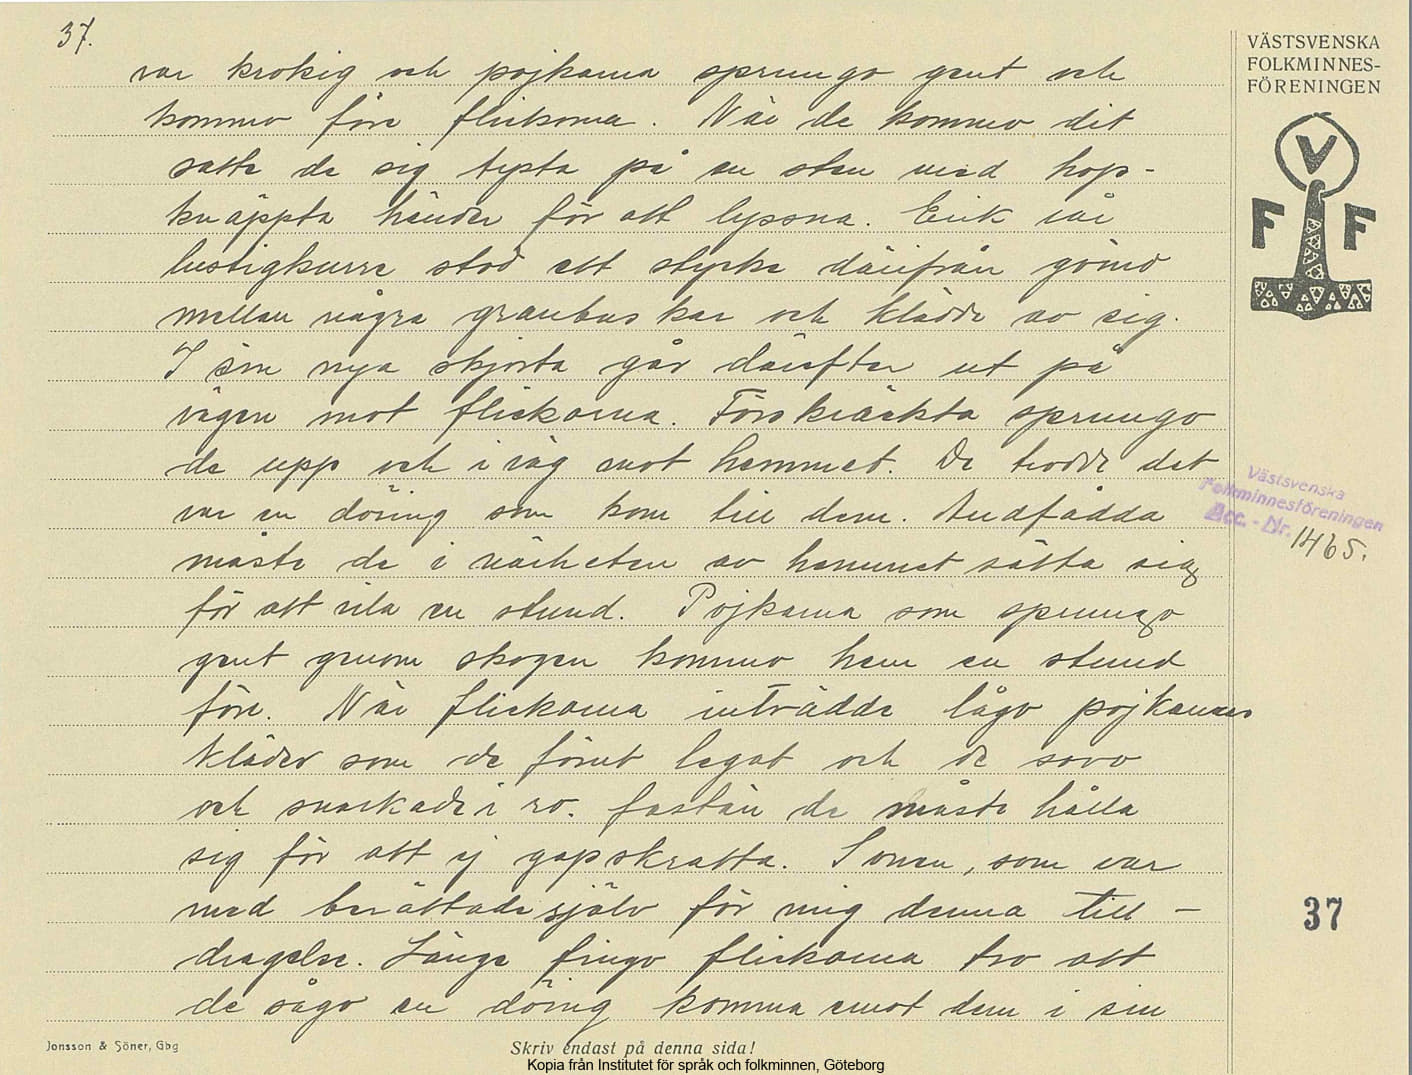 37.
var krokig och pojkarna sprungo gent och
kommo före flickorna. När de kommo dit
satte de sig tysta på en sten med hop-
knäppta händer för att lyssna. Erik vår
lustigkurre stod ett stycke därifrån gömd
mellan några granbuskar och klädde av sig.
I sin nya skjorta går därefter ut på
vägen mot flickorna. Förskräckta sprungo
de upp och i väg mot hemmet. De trodde det
var en döing som kom till dem. Andfådda
måste de i närheten av hemmet sätta sig
för att vila en stund. Pojkarna som sprungo
gent genom skogen kommo hem en stund
före. När flickorna inträdde lågo pojkarnas
kläder som de förut legat och de sovo
och snarkade i ro. fastän de måste hålla
sig för att ej gapskratta. Sonen, som var
med berättade själv för mig denna till-
dragelse. Länge fingo flickorna tro att
de sågo en döing komma emot dem i sin
VÄSTSVENSKA
FOLKMINNES-
FÖRENINGEN
V
F F
Västsvenska
Folkminnesföreningen
Acc. - Nr. 1465.
37
Jonsson & Söner, Gbg
Skriv endast på denna sida!
Kopia från Institutet för språk och folkminnen, Göteborg